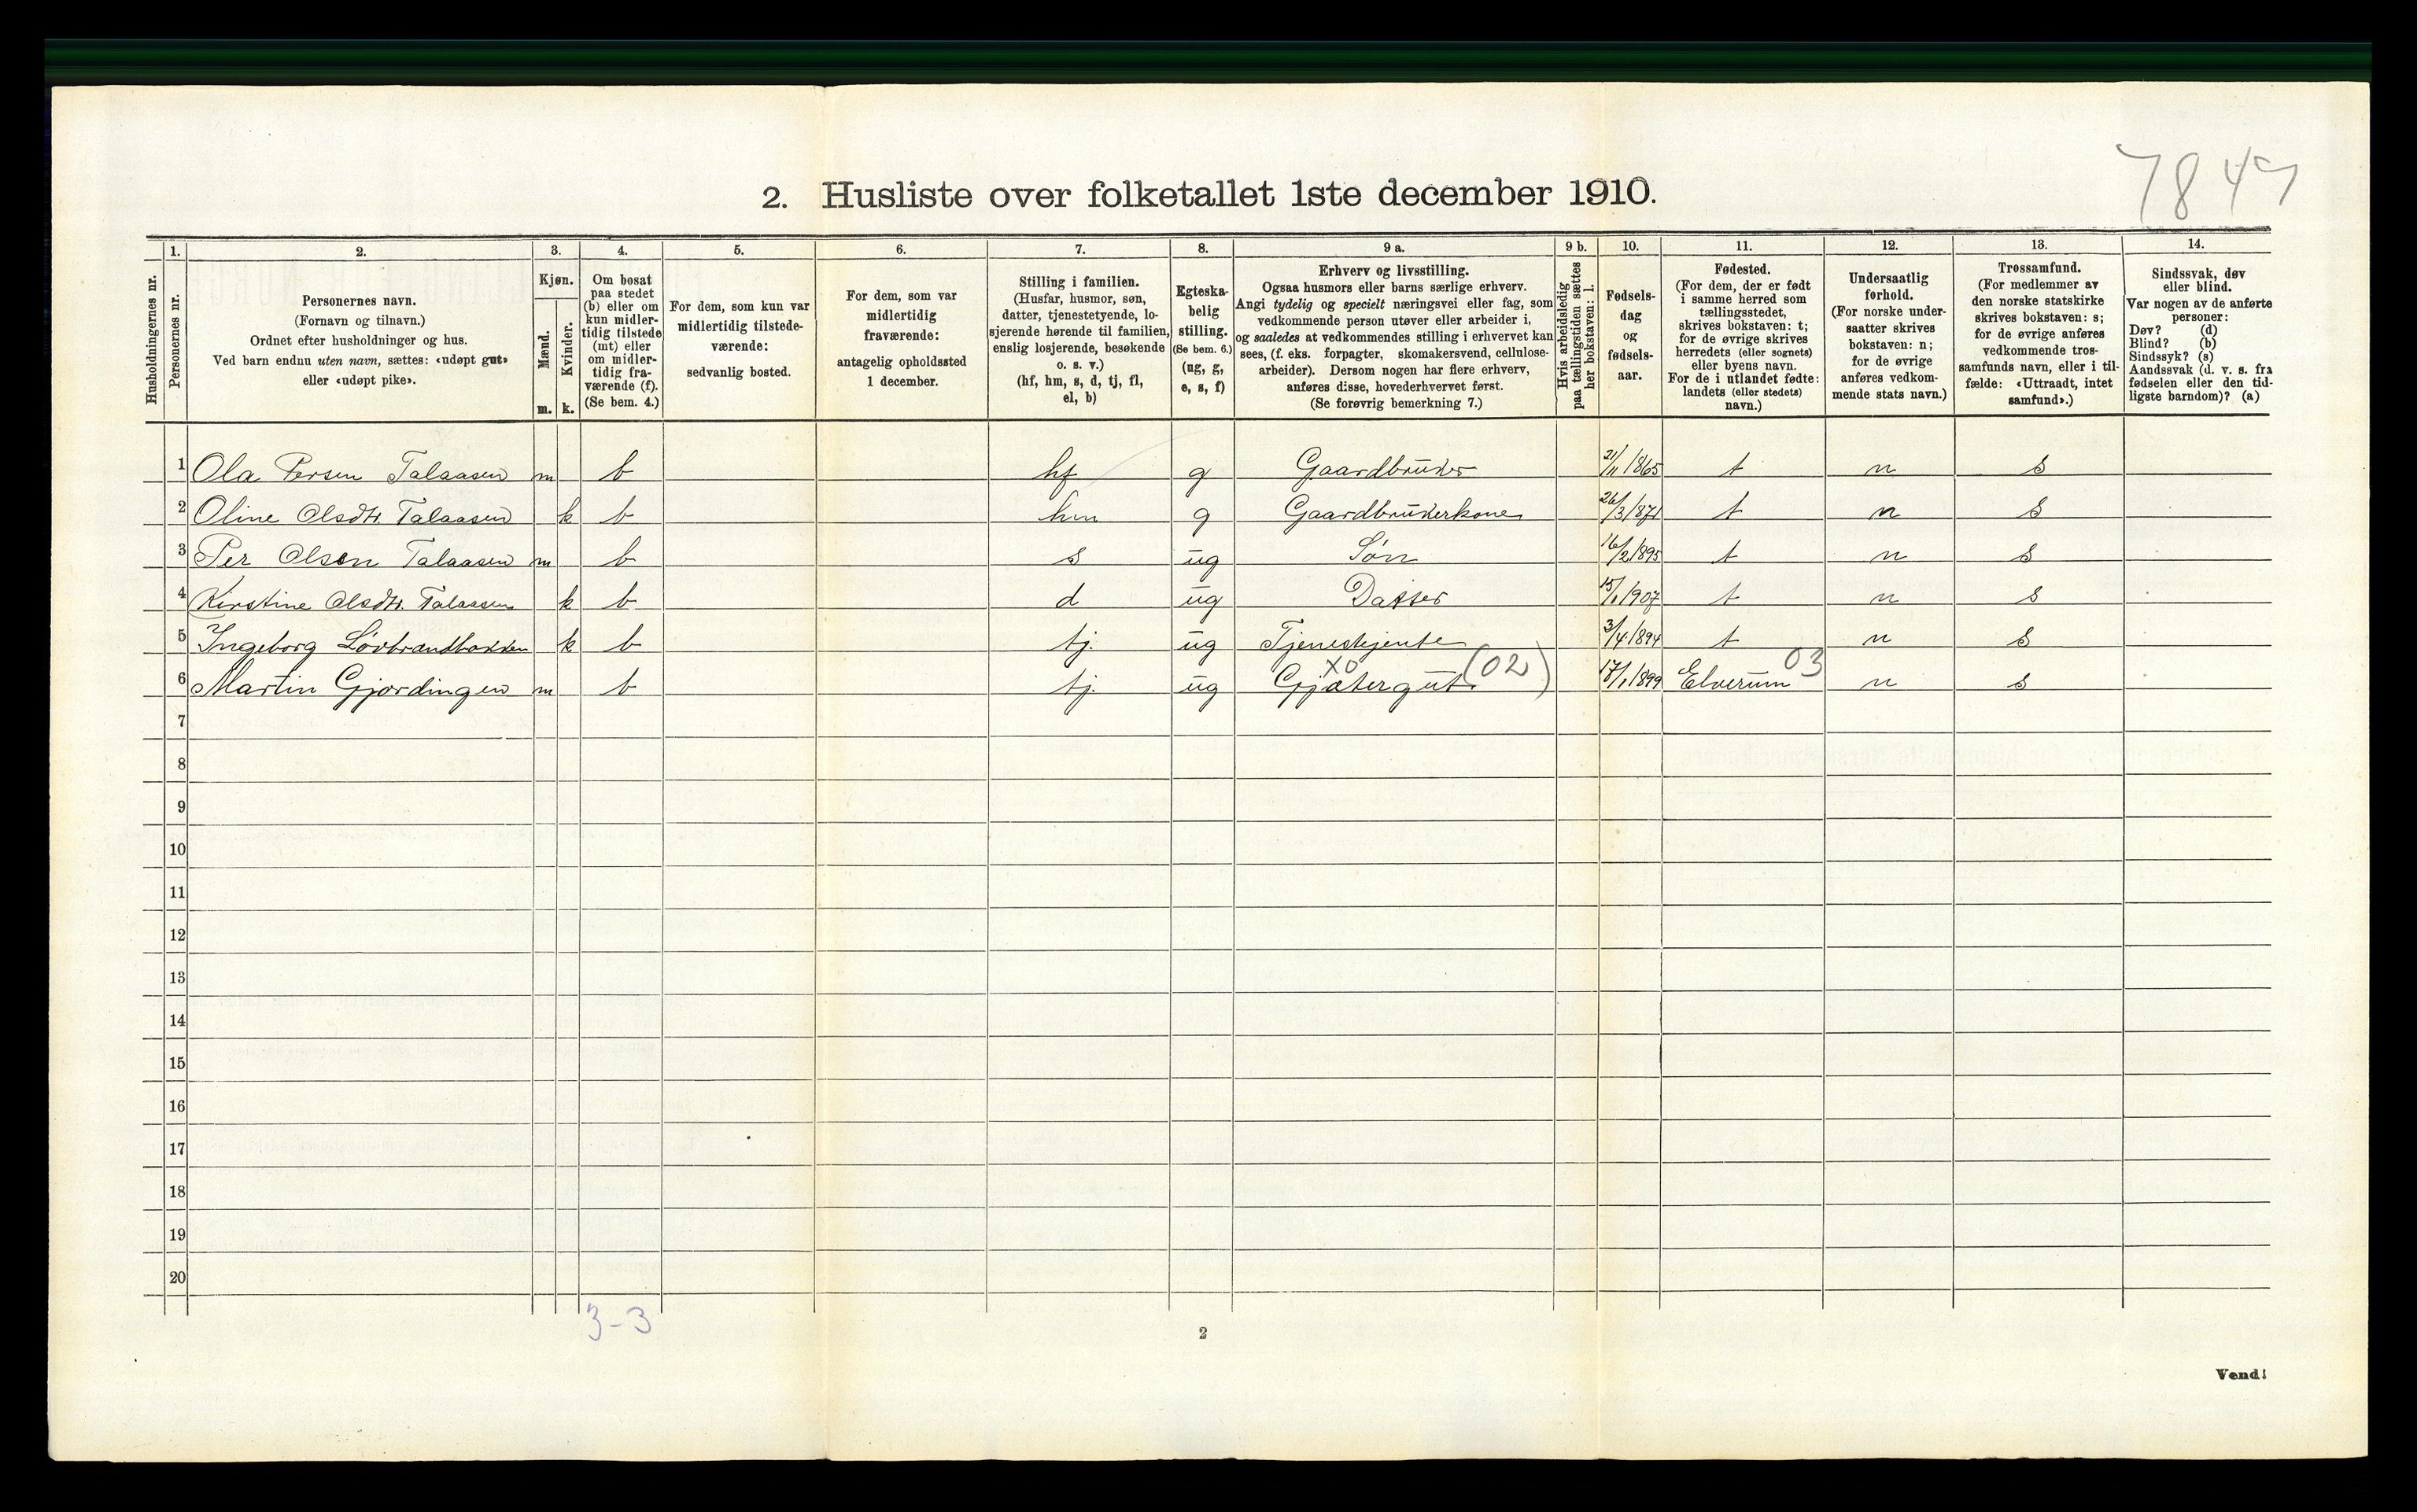 7847
2. Husliste over folketallet 1ste december 1910.
Husholdningernes nr.
1.
Personernes nr.
2.
Personernes navn.
(Fornavn og tilnavn.)
Ordnet efter husholdninger og hus.
Ved barn endnu uten navn, sættes: «udøpt gut»
eller «udøpt pike».
3.
Kjøn.
Mænd.
m.
Kvinder.
k.
4.
Om bosat
paa stedet
(b) eller om
kun midler-
tidig tilstede
(mt) eller
om midler-
tidig fra-
værende (f).
(Se bem. 4.)
5.
For dem, som kun var
midlertidig tilstede-
værende:
sedvanlig bosted.
6.
For dem, som var
midlertidig
fraværende:
antagelig opholdssted
1 december.
7.
Stilling i familien.
(Husfar, husmor, søn,
datter, tjenestetyende, lo-
sjerende hørende til familien,
enslig losjerende, besøkende
o. s. v.)
(hf, hm, s, d, tj, fl,
el, b)
8.
Egteska-
belig
stilling.
(Se bem. 6.)
(ug, g,
e, s, f)
9 a.
Erhverv og livsstilling.
Ogsaa husmors eller barns særlige erhverv.
Angi tydelig og specielt næringsvei eller fag, som
vedkommende person utøver eller arbeider i,
og saaledes at vedkommendes stilling i erhvervet kan
sees, (f. eks. forpagter, skomakersvend, cellulose-
arbeider). Dersom nogen har flere erhverv,
anføres disse, hovederhvervet først.
(Se forøvrig bemerkning 7.)
9 b.
Hvis arbeidsledig
paa tællingstiden sættes
her bokstaven: l.
10.
Fødsels-
dag
og
fødsels-
aar.
11.
Fødested.
(For dem, der er født
i samme herred som
tællingsstedet,
skrives bokstaven: t;
for de øvrige skrives
herredets (eller sognets)
eller byens navn.
For de i utlandet fødte:
landets (eller stedets)
navn.)
12.
Undersaatlig
forhold.
(For norske under-
saatter skrives
bokstaven: n;
for de øvrige
anføres vedkom-
mende stats navn.)
13.
Trossamfund.
(For medlemmer av
den norske statskirke
skrives bokstaven: s;
for de øvrige anføres
vedkommende tros-
samfunds navn, eller i til-
fælde: «Uttraadt, intet
samfund».)
14.
Sindssvak, døv
eller blind.
Var nogen av de anførte
personer:
Døv? (d)
Blind? (b)
Sindssyk? (s)
Aandssvak (d. v. s. fra
fødselen eller den tid-
ligste barndom)? (a)
1 Ola Persen Talaasen m b hf g Gaardbruker 21/11 1865 t n s
2 Oline Olsdtr. Talaasen k b hm g Gaardbrukerkone 26/3 1871 t n s
3 Per Olsen Talaasen m b s ug Søn 16/2 1895 t n s
4 Kirstine Olsdtr. Talaasen k b d ug Datter 15/1 1907 t n s
5 Ingeborg Løvbrandbakken k b tj. ug Tjenestejente 3/4 1894 t n s
X0 (02) 03
6 Martin Gjørdingen m b tj. ug Gjætergut. 17/1 1899 Elverum n s
7
8
9
10
11
12
13
14
15
16
17
18
19
20
3-3
2
Vend!